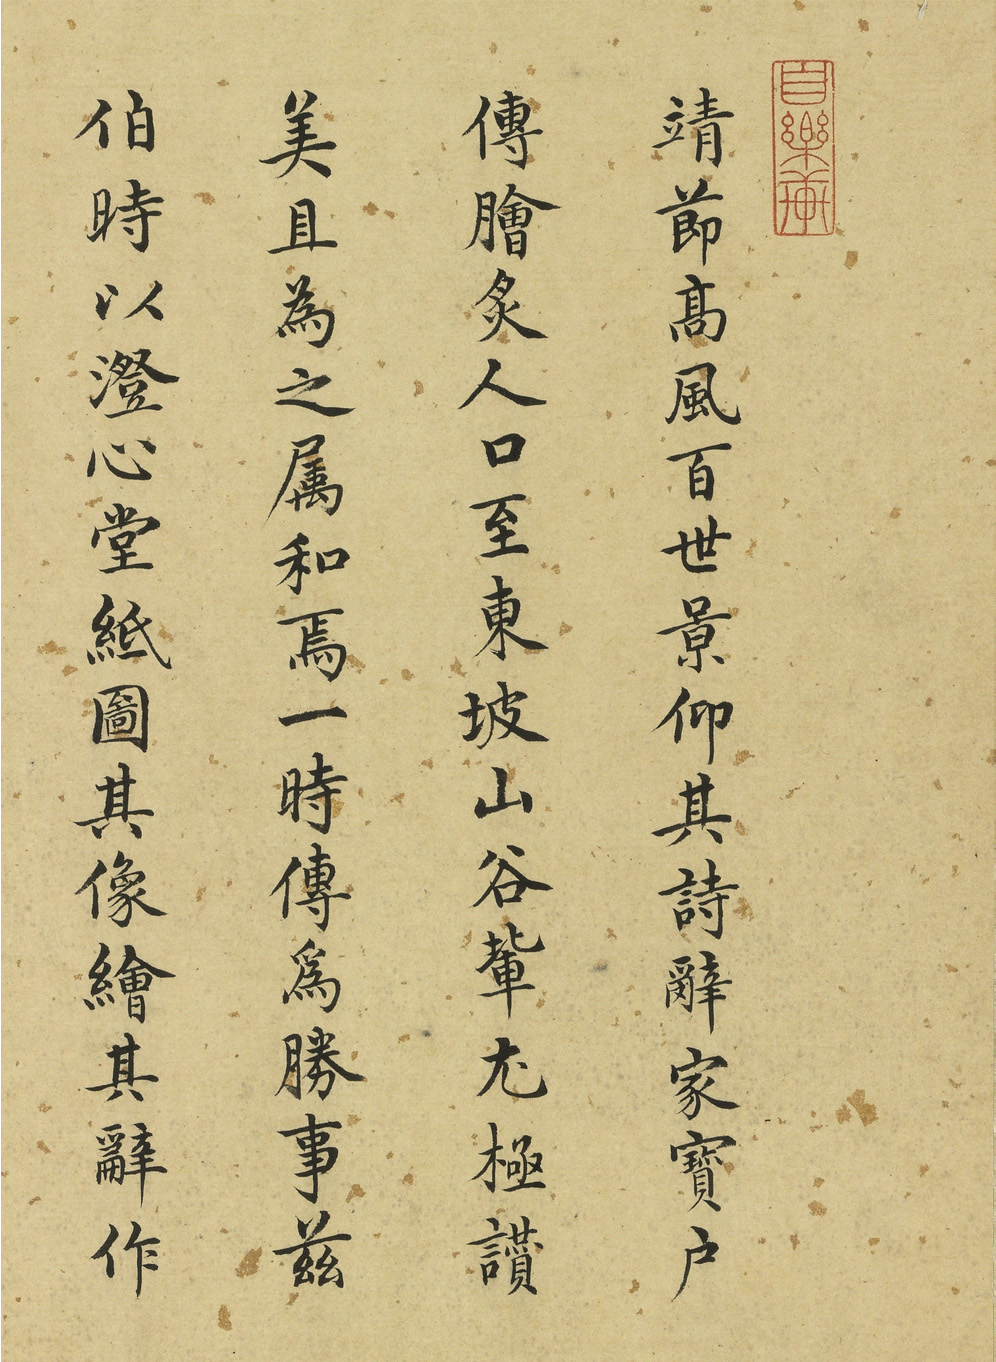 自樂
靖節高風百世景仰其詩辭家寶户
傳膾炙人口至東坡山谷輩尤極讃
美且為之属和焉一時傳為勝事兹
伯時以澄心堂紙圖其像繪其辭作